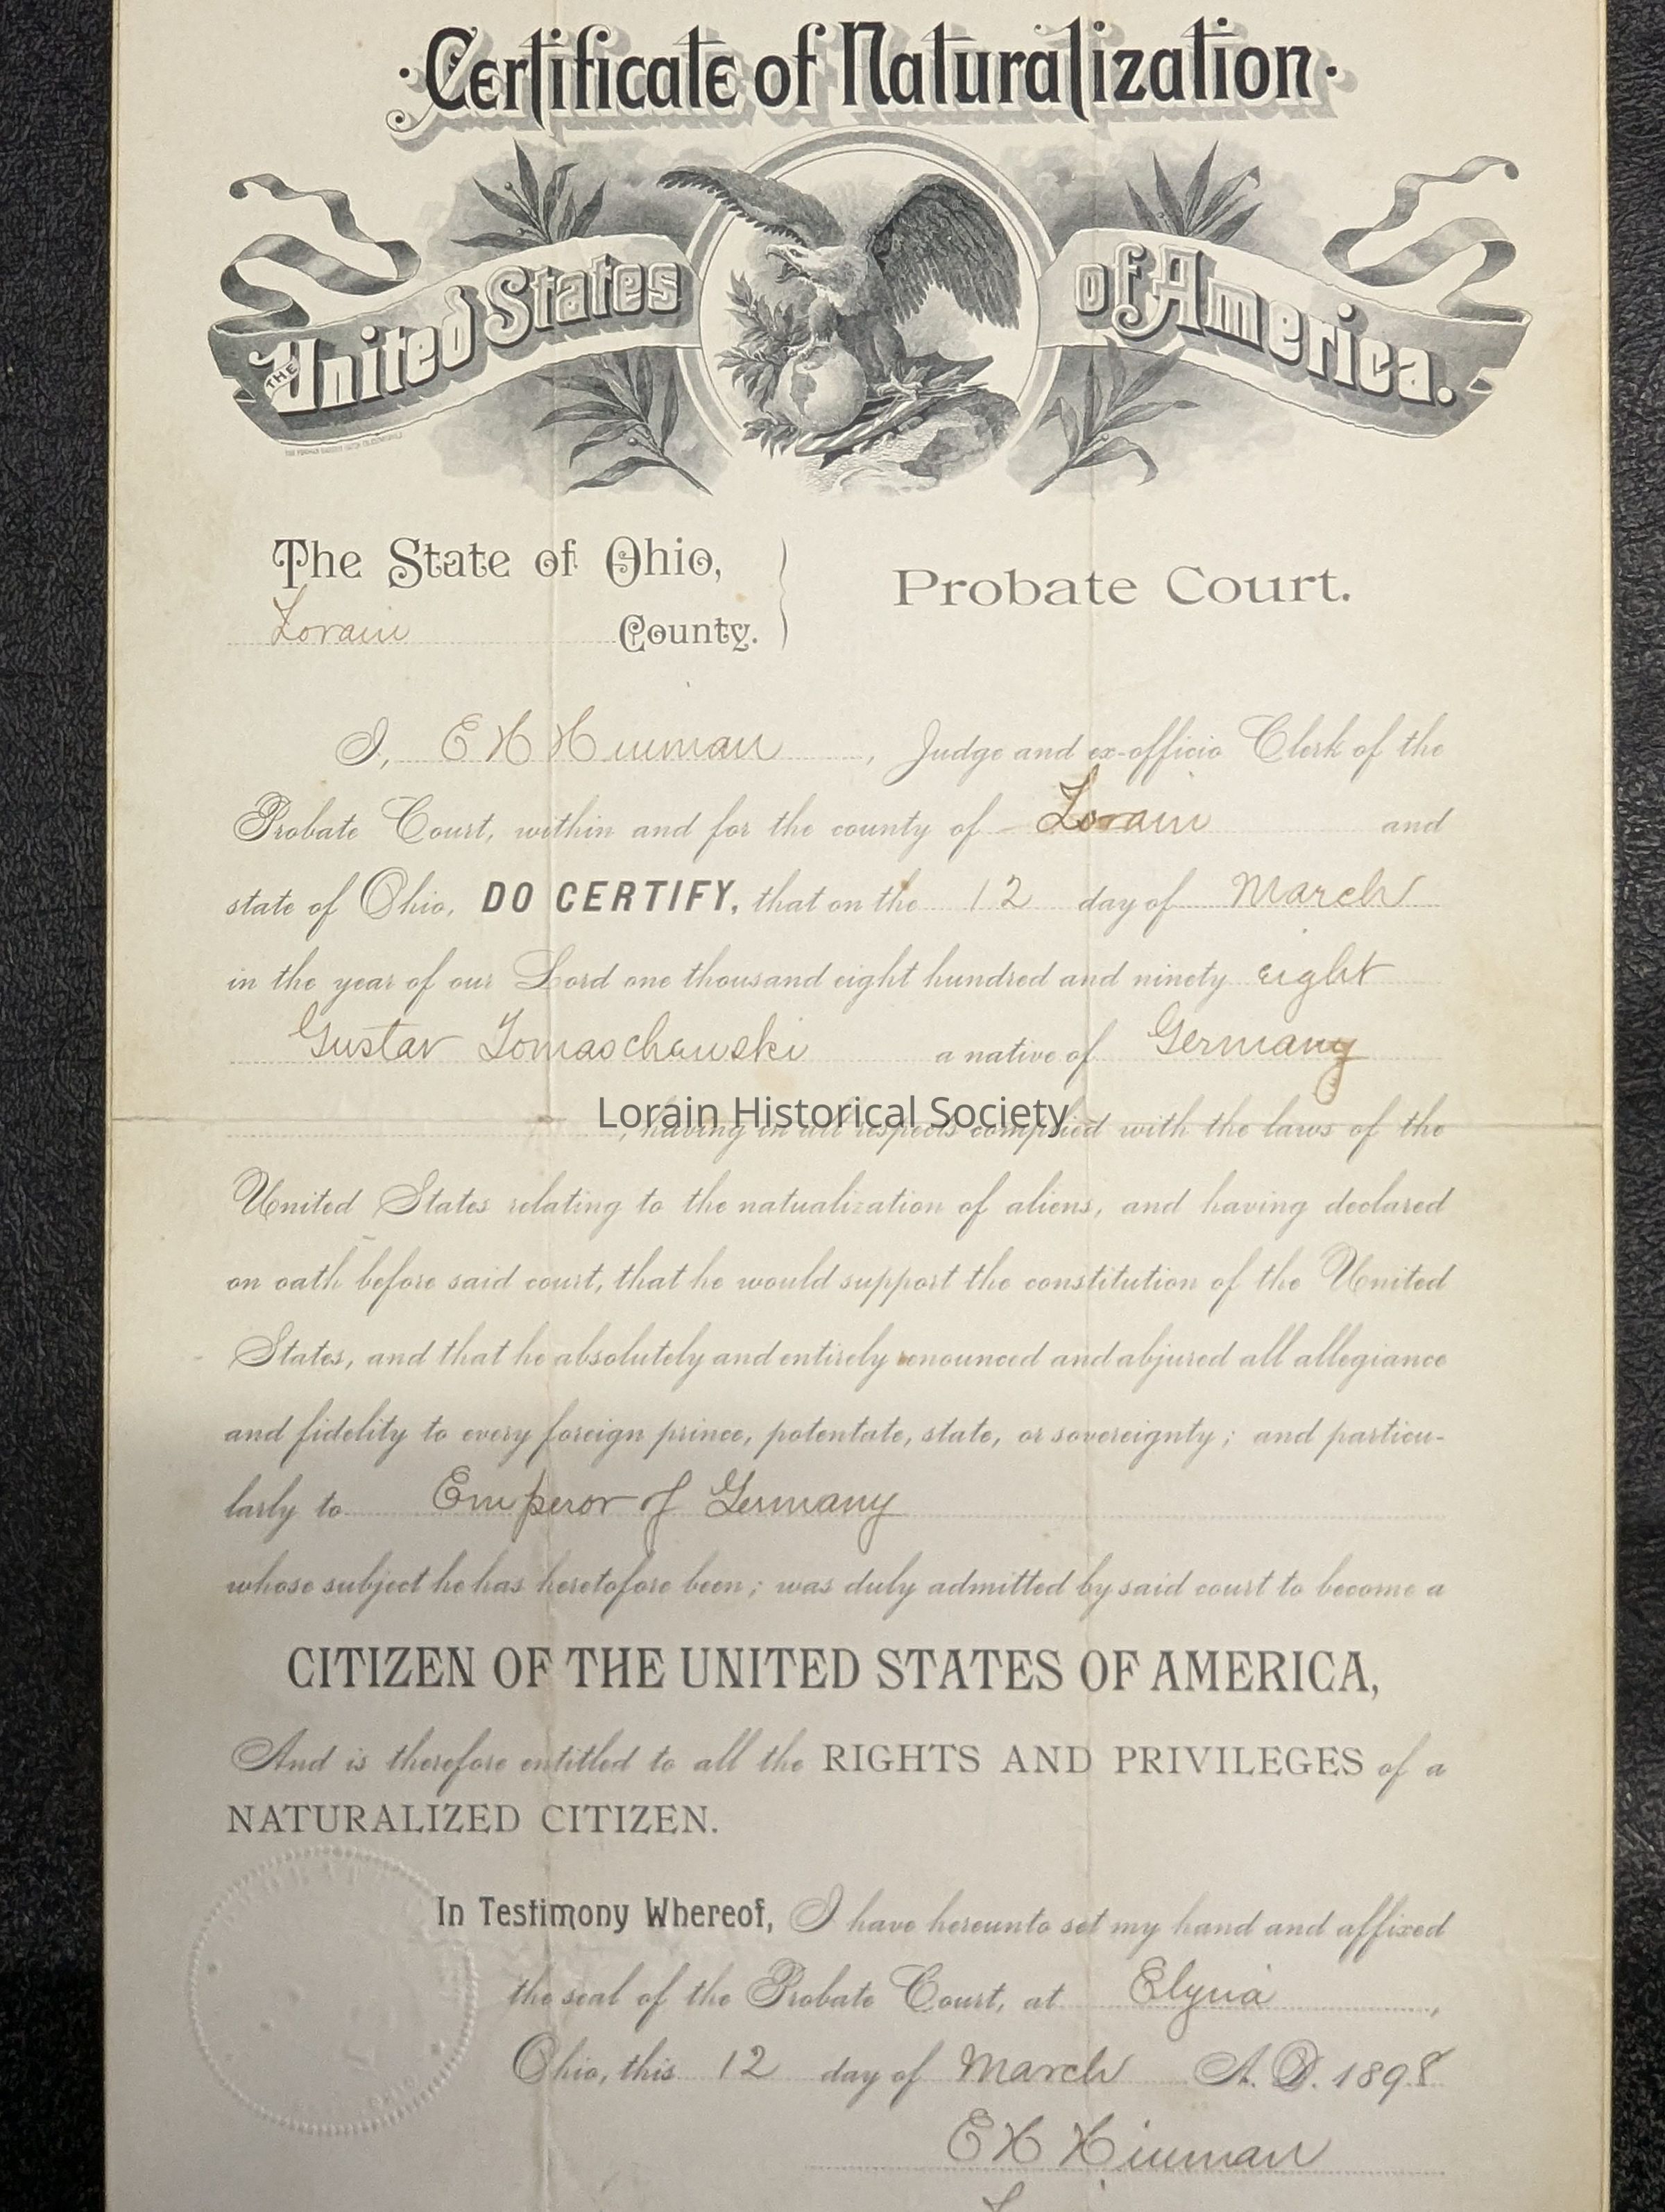 Certificate of Naturalization
THE United States of America.
The State of Ohio,
Lorain County.
Probate Court.
I, E H Hinman, Judge and ex-officio Clerk of the
Probate Court, within and for the county of Lorain and
state of Ohio, DO CERTIFY, that on the 12 day of March
in the year of our Lord one thousand eight hundred and ninety eight
Gustav Tomaschewski a native of Germany
Lorain Historical Society
, having in all respects complied with the laws of the
United States relating to the natualization of aliens, and having declared
on oath before said court, that he would support the constitution of the United
States, and that he absolutely and entirely renounced and abjured all allegiance
and fidelity to every foreign prince, potentate, state, or sovereignty; and particu-
larly to Emperor of Germany
whose subject he has heretofore been; was duly admitted by said court to become a
CITIZEN OF THE UNITED STATES OF AMERICA,
And is therefore entitled to all the RIGHTS AND PRIVILEGES of a
NATURALIZED CITIZEN.
In Testimony Whereof, I have hereunto set my hand and affixed
the seal of the Probate Court, at Elyria,
Ohio, this 12 day of March A.D. 1898
E H Hinman